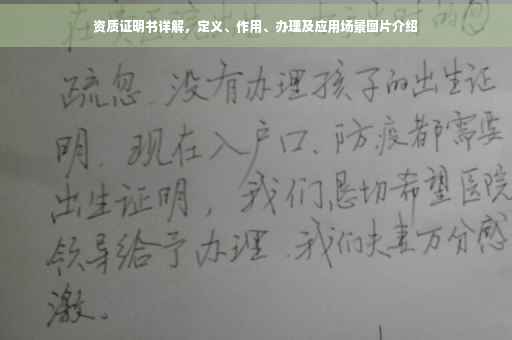 资质证明书详解，定义、作用、办理及应用场景图片介绍
疏忽.没有办理孩子的出生证
明.现在入户口、防疫都需要
出生证明，我们恳切希望医院
领导给予办理.我们夫妻万分感
激。